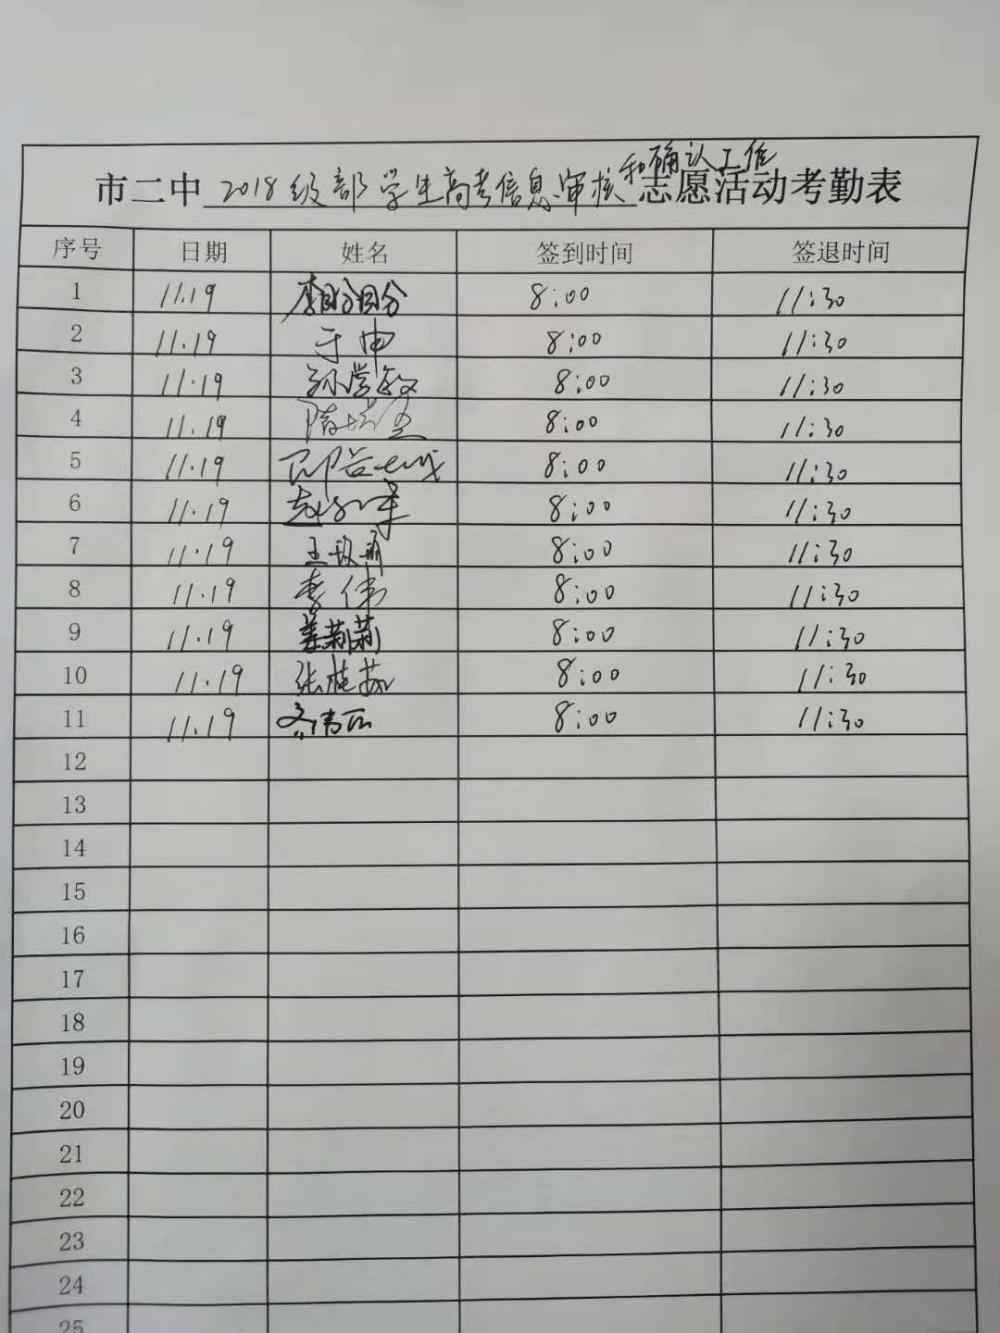 市二中 2018级部学生高考信息审核和确认工作 志愿活动考勤表
序号 日期 姓名 签到时间 签退时间
1 11.19 李盼盼 8:00 11:30
2 11.19 于申 8:00 11:30
3 11.19 孙学敏 8:00 11:30
4 11.19 隋 8:00 11:30
5 11.19 8:00 11:30
6 11.19 赵 军 8:00 11:30
7 11.19 王 丽 8:00 11:30
8 11.19 李伟 8:00 11:30
9 11.19 姜莉莉 8:00 11:30
10 11.19 张桂 8:00 11:30
11 11.19 8:00 11:30
12
13
14
15
16
17
18
19
20
21
22
23
24
25